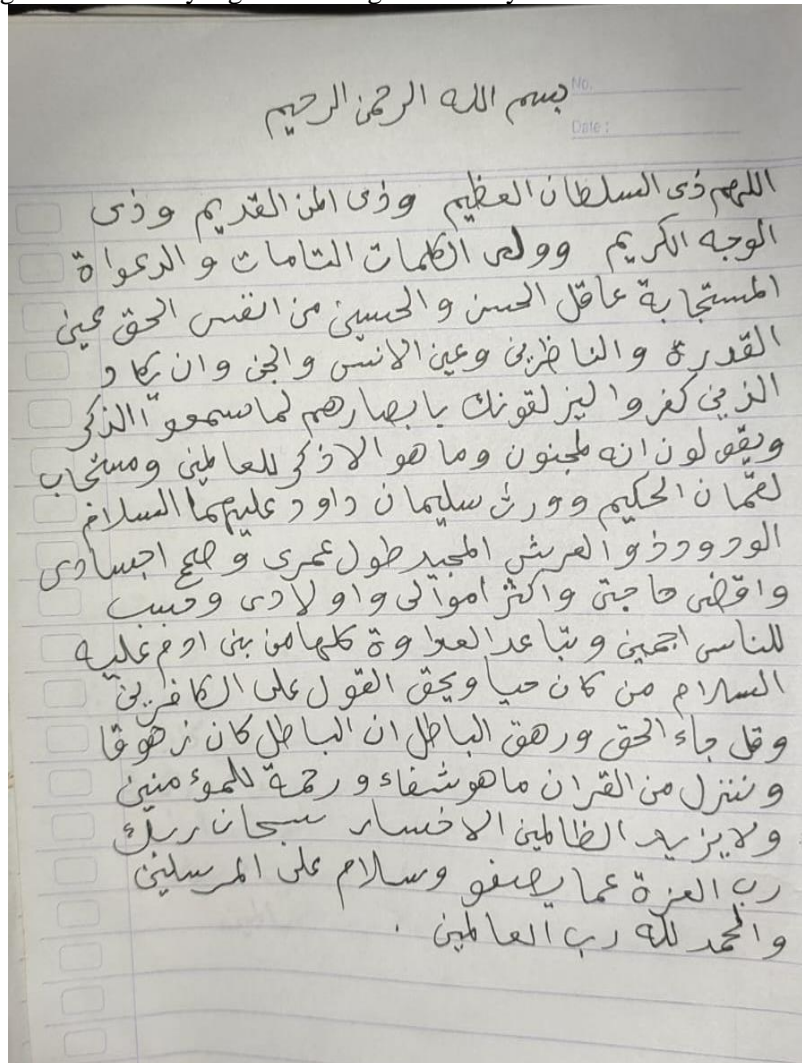 بسم الله الرحمن الرحيم
No.
Date :
اللهم ذى السلطان العظيم وذى المن القديم وذى
الوجه الكريم وولى الكلمات التامات و الدعواة
المستجابة عاقل الحسن و الحسين من انفس الحق عين
القدرة والناظرين وعين الانس والجن وان يكاد
الذين كفروا ليزلقونك بابصارهم لما سمعوا الذكر
ويقولون انه لمجنون وما هو الا ذكر للعالمين ومستجاب
لقمان الحكيم وورث سليمان داود عليهما السلام
الودود ذو العرش المجيد طول عمرى و صحح اجسادى
واقضى حاجتى واكثر اموالى واولادى وحبب
للناس اجمين وتباعد العداوة كلها من بنى ادم عليه
السلام من كان حيا ويحق القول على الكافرين
وقل جاء الحق ورهق الباطل ان الباطل كان زهوقا
وننزل من القران ما هو شفاء ورحمة للمؤمنين
ولا يزيد الظالمين الا خسار سبحان ربك
رب العزة عما يصفو وسلام على المرسلين
والحمد لله رب العالمين .